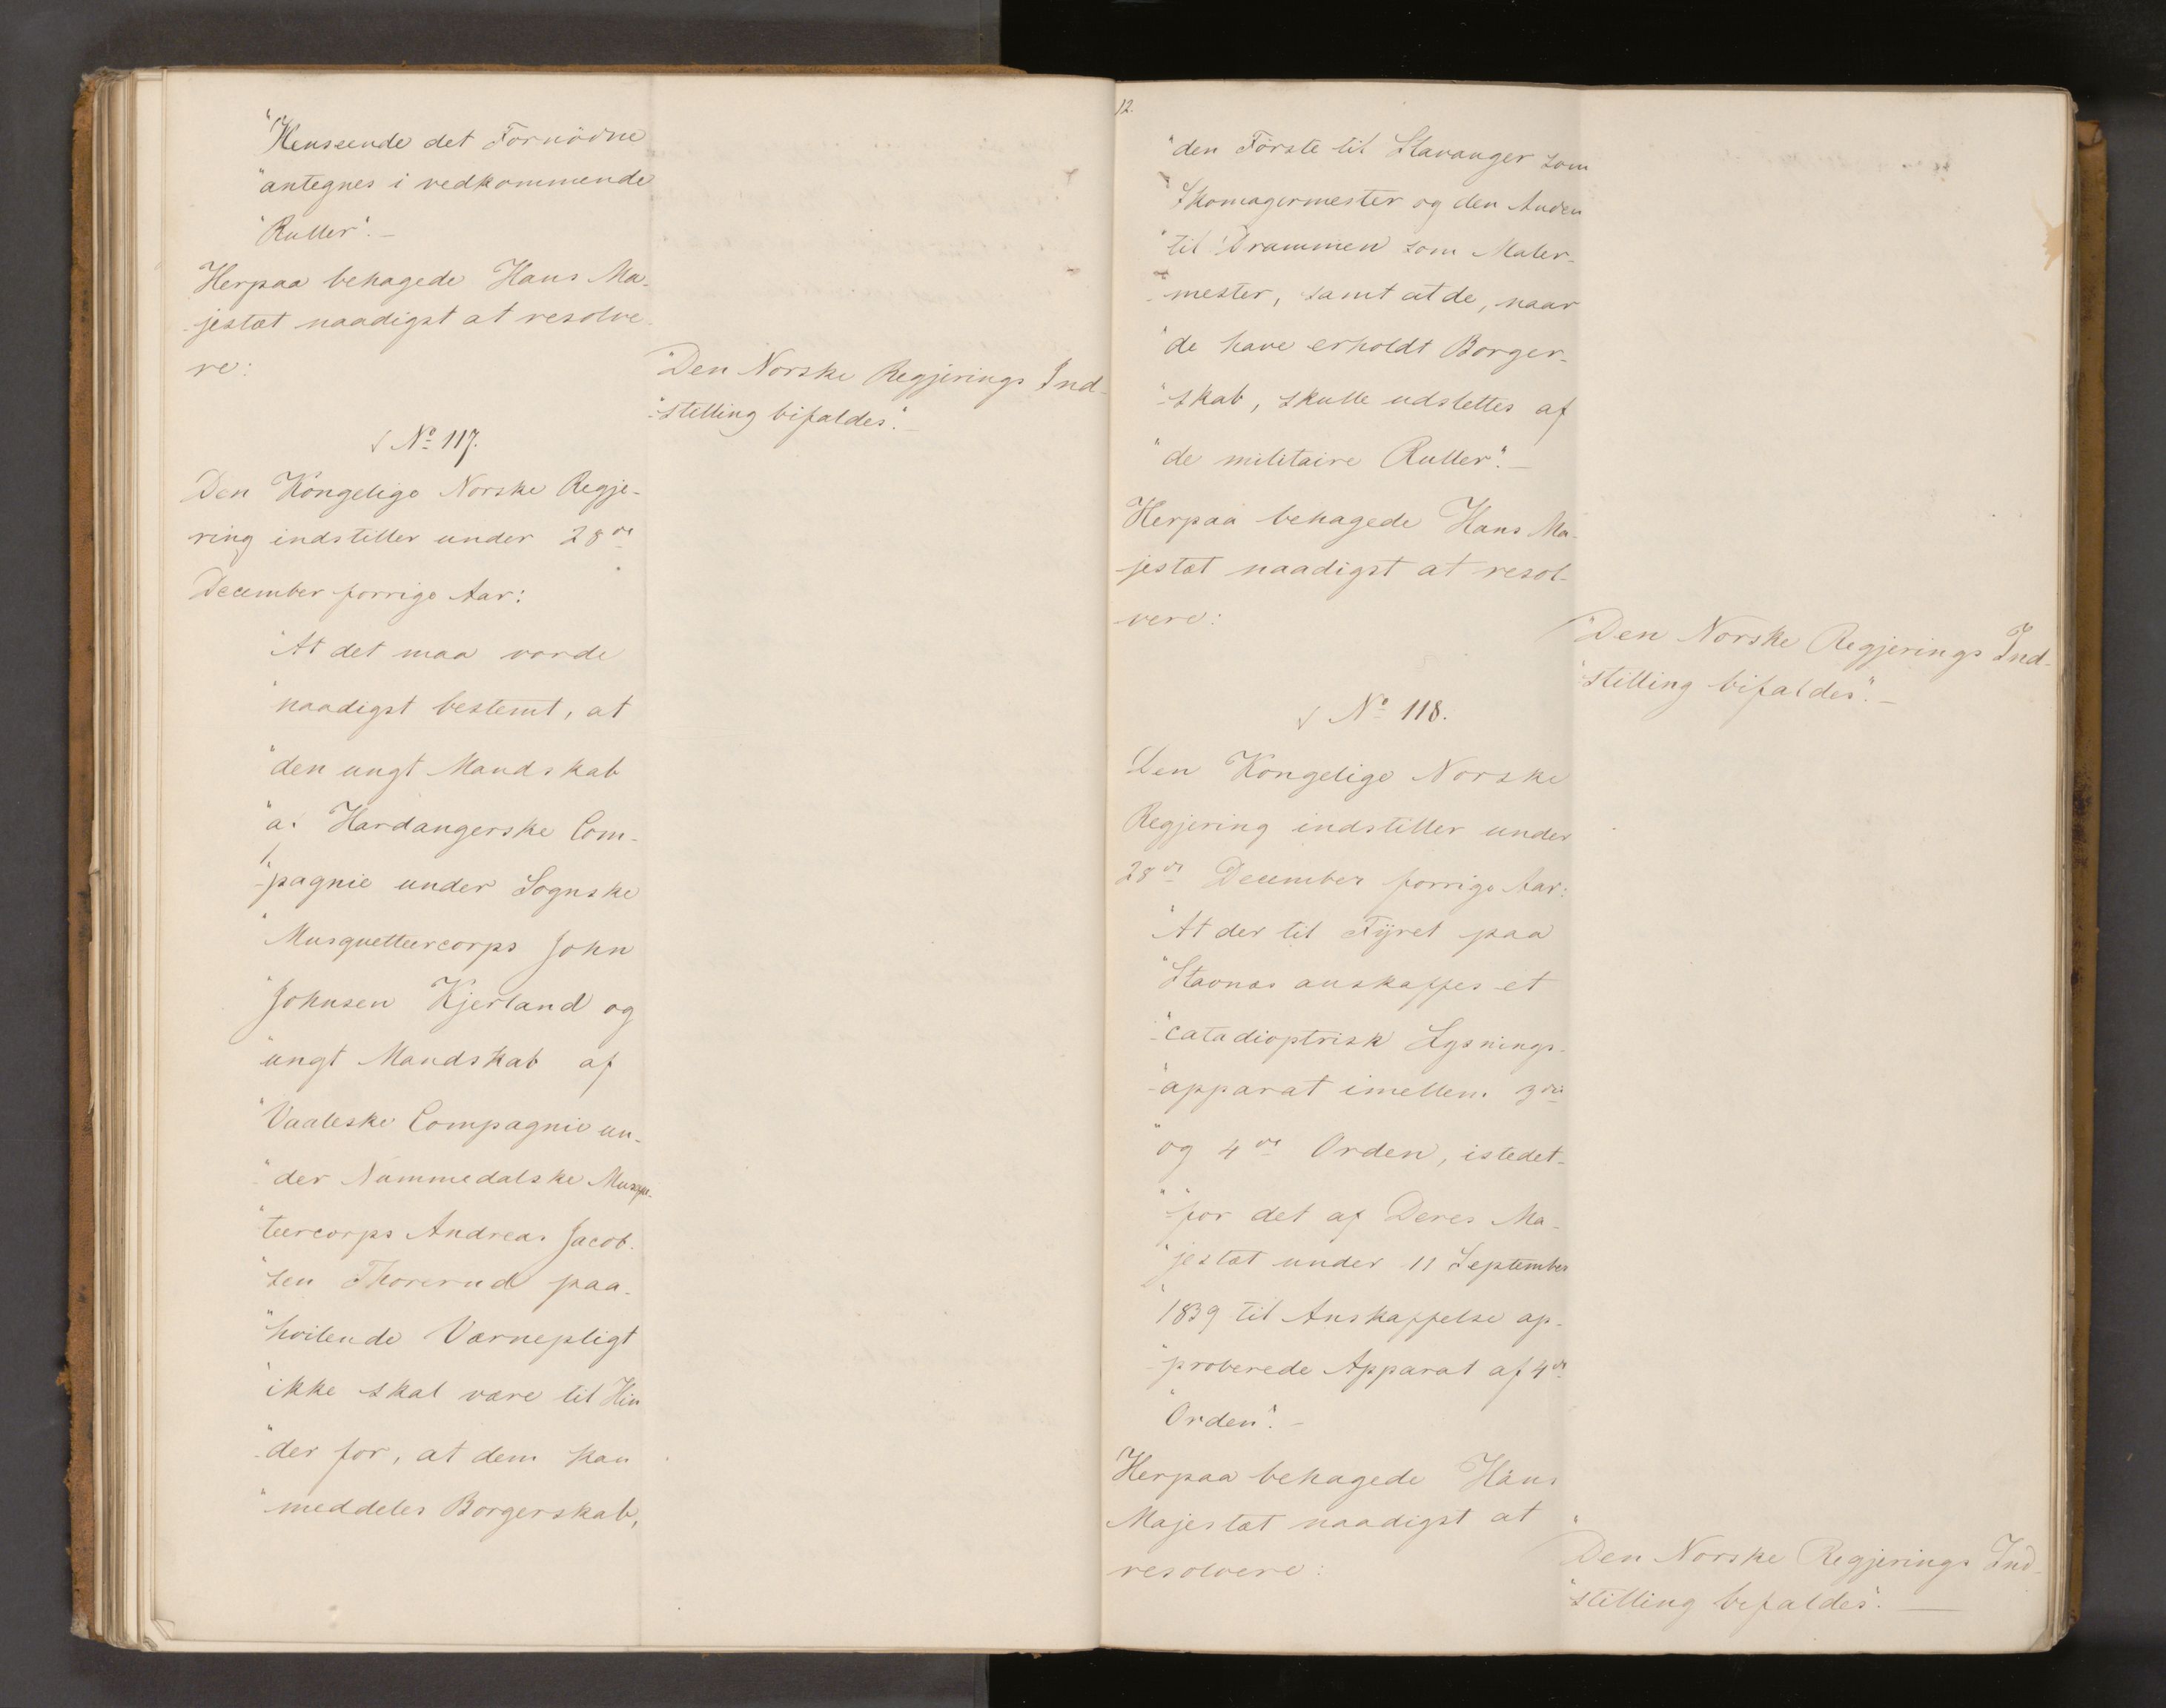 "Henseende det Fornödne
"antegnes i vedkommende
"Ruller". –
Herpaa behagede Hans Ma-
jestæt naadigst at resolve-
re:
"Den Norske Regjerings Ind-
"stilling bifaldes". –
√ No 117.
Den Kongelige Norske Regje-
ring indstiller under 28de
December forrige Aar:
"At det maa vorde
"naadigst bestemt, at
"den ungt Mandskab
"af Hardangerske Com-
"pagnie under Sognske
"Musquetteercorps John
"Johnsen Kjerland og
"ungt Mandskab af
"Vaaleske Compagnie un-
"der Nummedalske Musque-
"teercorps Andreas Jacob-
"sen Thorerud paa-
"hvilende Værnepligt
"ikke skal være til Hin-
"der for, at dem kan
"meddeles Borgerskab,
12.
"den Förste til Stavanger som
"Skomagermester og den Anden
"til Drammen som Maler-
"mester, samt at de, naar
"de have erholdt Borger-
"skab, skulle udslettes af
"de militaire Ruller". –
Herpaa behagede Hans Ma-
jestæt naadigst at resol-
vere:
"Den Norske Regjerings Ind-
"stilling bifaldes". –
√ No 118.
Den Kongelige Norske
Regjering indstiller under
28de December forrige Aar:
"At der til Fyret paa
"Stavnæs anskaffes et
"catadioptrisk Lysnings-
"apparat imellem 3die
"og 4de Orden, istedet-
"for det af Deres Ma-
"jestæt under 11 September
"1839 til Anskaffelse ap-
"proberede Apparat af 4de
"Orden". –
Herpaa behagede Hans
Majestæt naadigst at
resolvere:
"Den Norske Regjerings Ind-
"stilling bifaldes". –